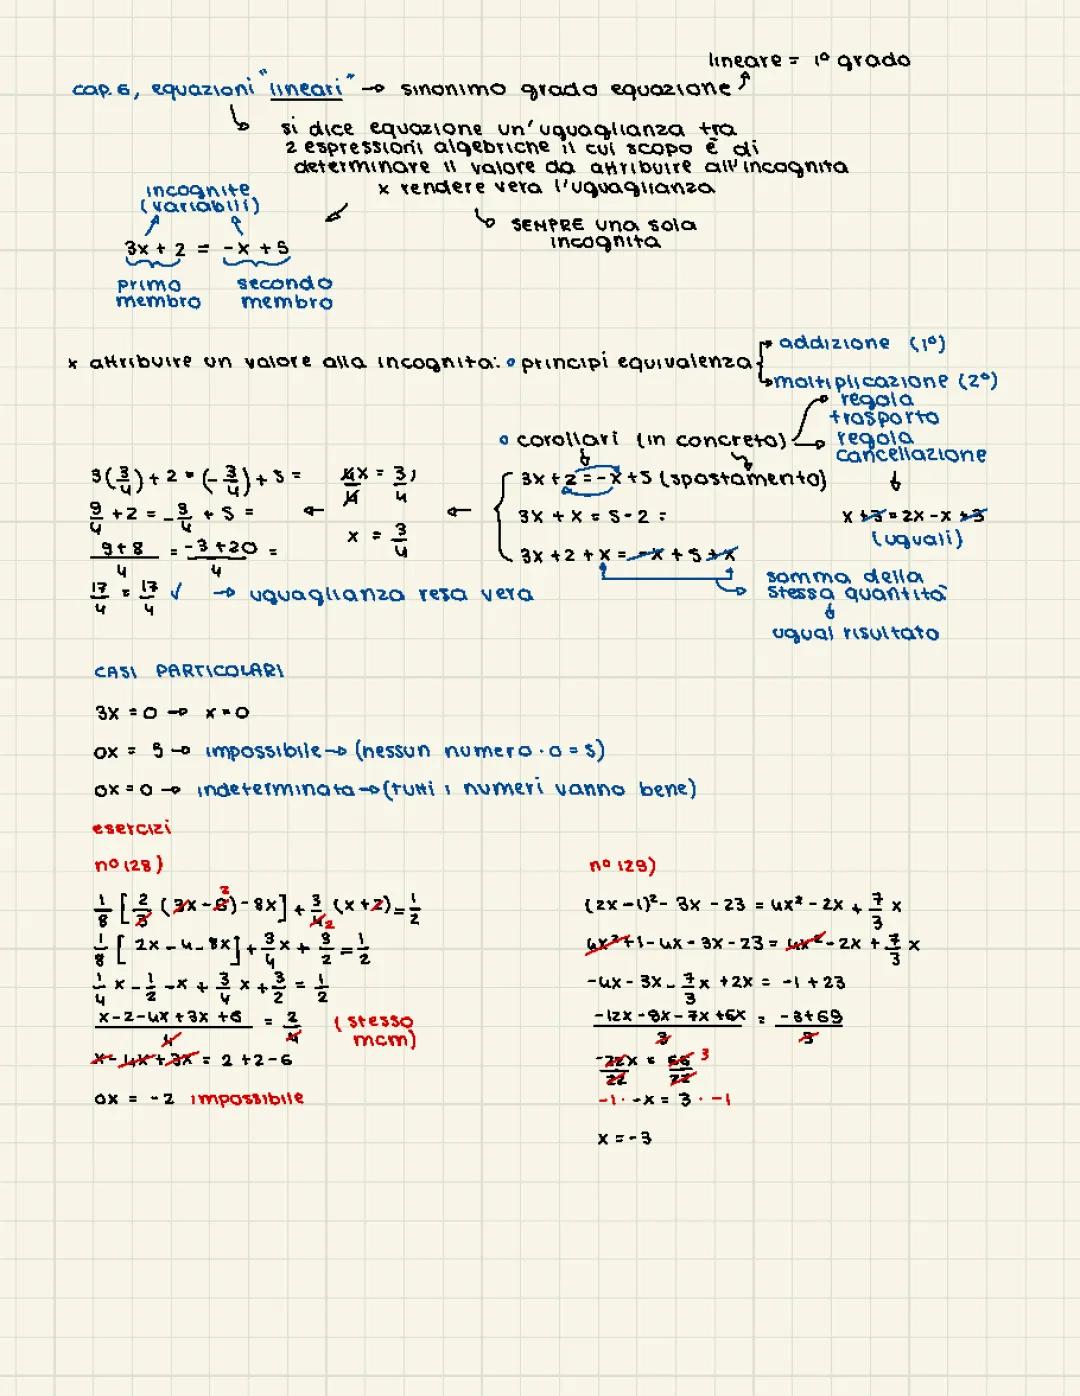 lineare = 1° grado
cap. 6, equazioni "lineari" → sinonimo grado equazione
si dice equazione un'uguaglianza tra
2 espressioni algebriche il cui scopo è di
determinare il valore da attribuire all'incognita
x rendere vera l'uguaglianza
incognite
(variabili)
SEMPRE una sola
incognita
3x + 2 = -x + 5
primo
membro
secondo
membro
x attribuire un valore alla incognita: • principi equivalenza
addizione (1°)
moltiplicazione (2°)
• corollari (in concreto)
regola
trasporto
regola
cancellazione
3x + 2 = -x + 5 (spostamento)
3x + x = 5 - 2 =
3x + 2 + x = -x + 5 + x
x + 3 = 2x - x + 3
(uguali)
somma della
stessa quantità
ugual risultato
4x = 3
4 4
x = 3/4
3(3/4) + 2 = (-3/4) + 5 =
9/4 + 2 = -3/4 + 5 =
9+8 = -3+20 =
4 4
17/4 = 17/4 ✓ → uguaglianza resa vera
CASI PARTICOLARI
3x = 0 → x = 0
0x = 5 → impossibile → (nessun numero · 0 = 5)
0x = 0 → indeterminata → (tutti i numeri vanno bene)
esercizi
n° 128)
1/8 [2/3 (3x - 6) - 8x] + 3/4 (x + 2) = 1/2
1/8 [2x - 4 - 8x] + 3/4 x + 3/2 = 1/2
1/4 x - 1/2 - x + 3/4 x + 3/2 = 1/2
x - 2 - 4x + 3x + 6 = 2
4 4
(stesso
mcm)
x - 4x + 3x = 2 + 2 - 6
0x = -2 impossibile
n° 129)
(2x - 1)² - 3x - 23 = 4x² - 2x + 7/3 x
4x² + 1 - 4x - 3x - 23 = 4x² - 2x + 7/3 x
-4x - 3x - 7/3 x + 2x = -1 + 23
-12x - 9x - 7x + 6x = -3 + 69
3 3
-22x = 66 3
22 22
-1 · -x = 3 · -1
x = -3